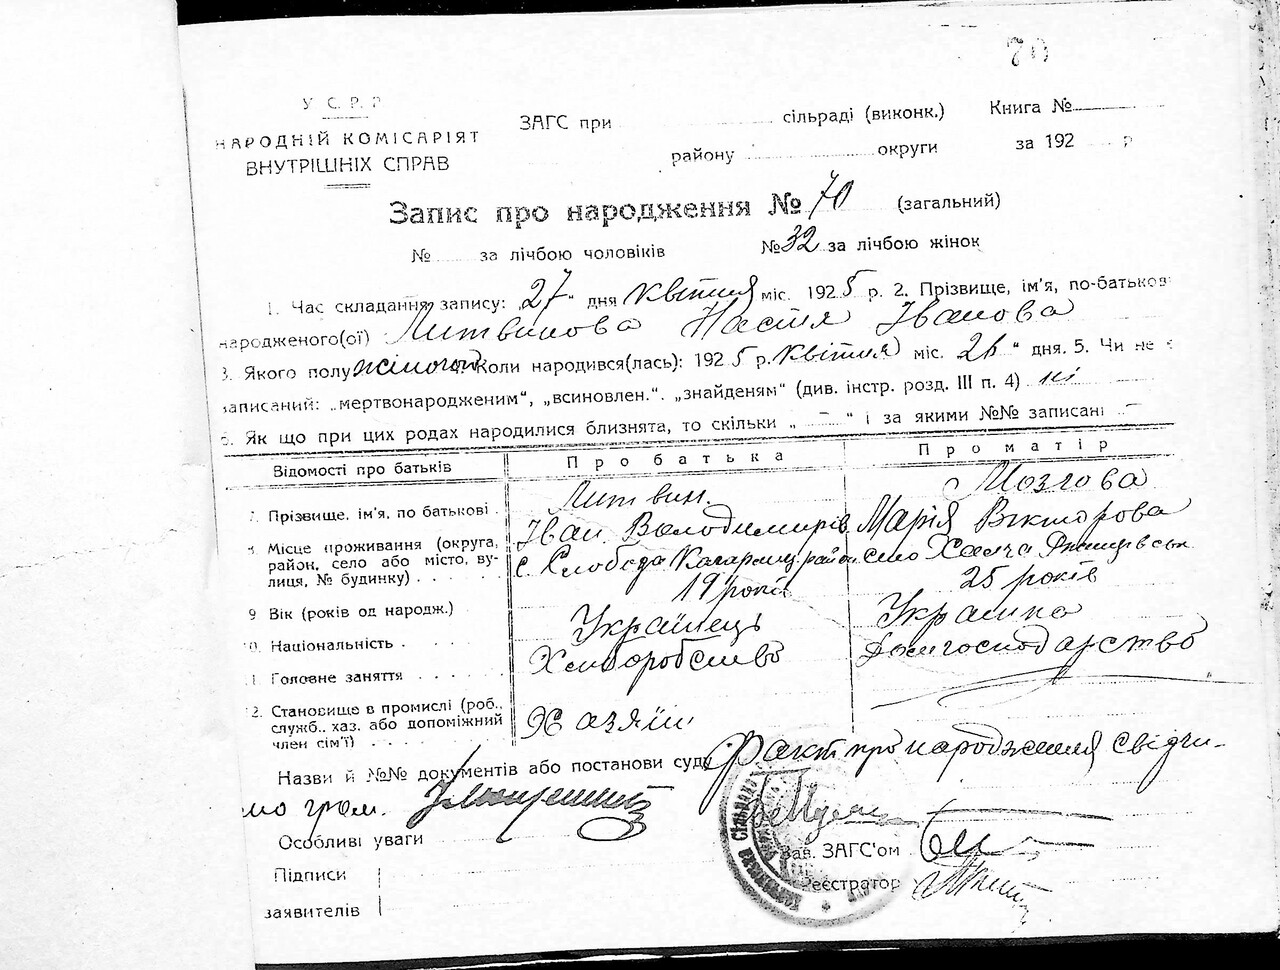 70
У С. Р. Р
НАРОДНІЙ КОМІСАРІЯТ
ВНУТРІШНІХ СПРАВ
ЗАГС при сільраді (виконк.) Книга №
району округи за 192 р
Запис про народження № 70 (загальний)
№ за лічбою чоловіків № 32 за лічбою жінок
1. Час складання запису: „27" дня Квітня міс. 1925 р. 2. Прізвище, ім'я, по-батькові
народженого(ої) Литвинова Настя Іванова
3. Якого полу жіночого Коли народився(лась): 1925 р. Квітня міс. 26" дня. 5. Чи не є
записаний: „мертвонародженим", „всиновлен.". „знайденям" (див. інстр. розд. III п. 4) ні
6. Як що при цих родах народилися близнята, то скільки „ — " і за якими №№ записані —
Відомості про батьків Про батька Про матір
7. Прізвище, ім'я, по батькові Литвин Іван Володимирів Мозгова Марія Вікторова
8. Місце проживання (округа, район, село або місто, вулиця, № будинку) с. Слобода Кагарлиц. район село Халча Ржищівськ
9 Вік (років од народж.) 19 років 25 років
10. Національність Українець Українка
11. Головне заняття Хліборобство Домгосподарство
12. Становище в промислі (роб., служб., хаз. або допоміжний член сім'ї) Хазяїн
Назви й №№ документів або постанови суду Факт про народження свідчи-
мо гром.
Особливі уваги
Зав. ЗАГС'ом
Підписи
Реєстратор
заявителів